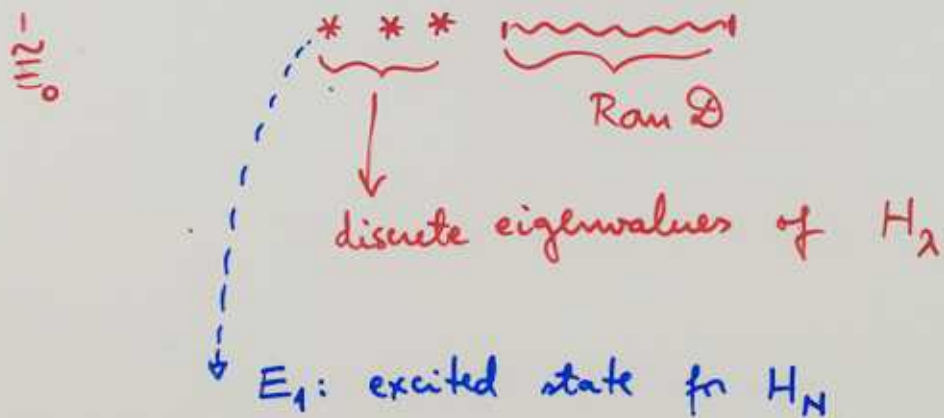 * * *
Ran D
discrete eigenvalues of H_λ
E_1: excited state for H_N